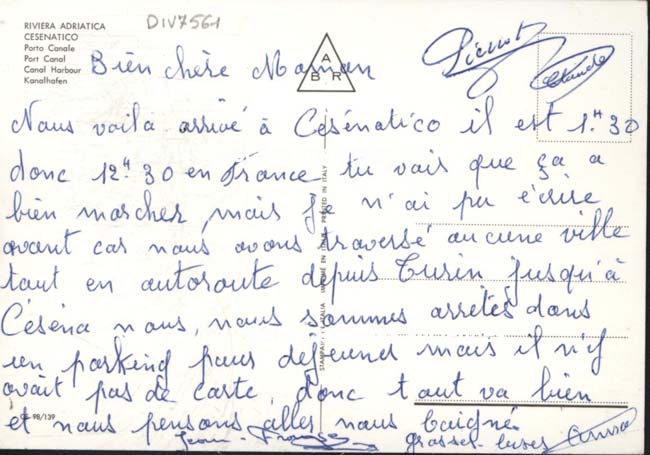 RIVIERA ADRIATICA
CESENATICO
Porto Canale
Port Canal
Canal Harbour
Kanalhafen
DIV7561
A
B R
Pierrot
Claude
Bien chère Maman
Nous voilà arrivé à Césénatico il est 1.H 30
donc 12H 30 en France tu vois que ça a
bien marcher, mais je n'ai pu écrire
avant car nous avons traversé aucune ville
tout en autoroute depuis Turin jusqu'à
Céséna nous, nous sommes arrêtés dans
un parking pour déjeuner mais il n'y
avait pas de carte, donc tout va bien
et nous pensons aller nous baigné.
grosses bises
98/139
PRINTED IN ITALY